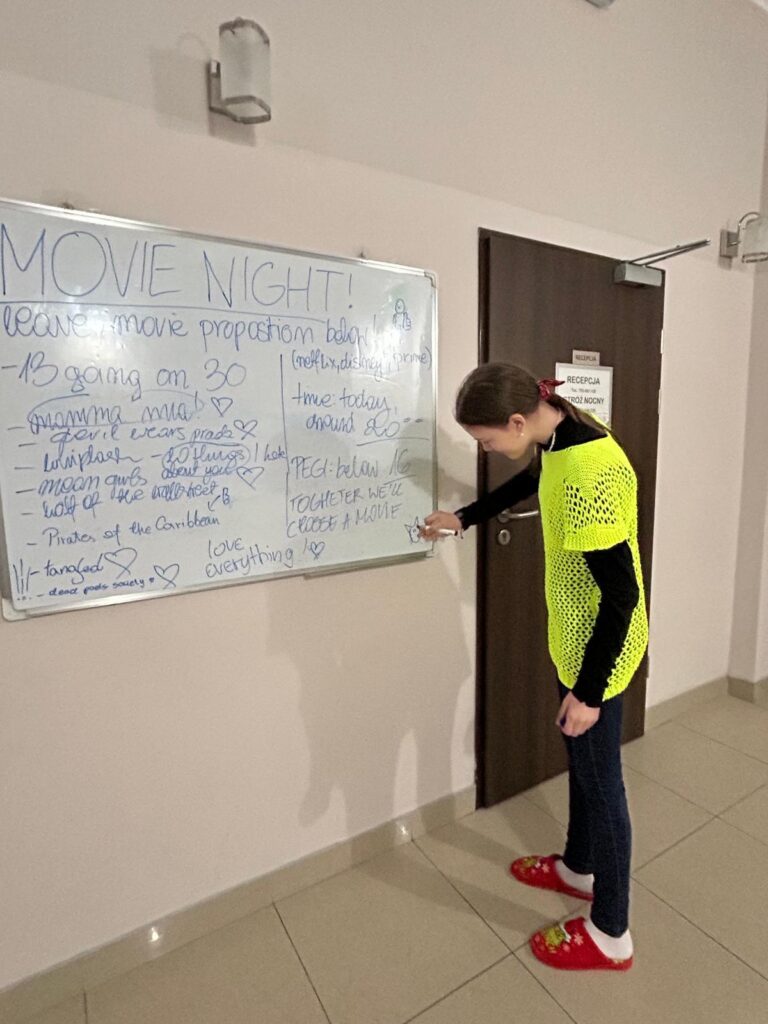 MOVIE NIGHT!
leave movie propostion below!
(netflix, disney+, prime)
- 13 going on 30
mamma mia!
- devil wears prada
- whiplash - 10 things I hate
about you
- mean girls
- wolf of the wallstreet
- Pirates of the Caribbean
- tangled
- dead poets society
love
everything!
time: today,
around
PEGI: below 16
TOGHETER WE'LL
CHOOSE A MOVIE
RECEPCJA
RECEPCJA
STRÓŻ NOCNY